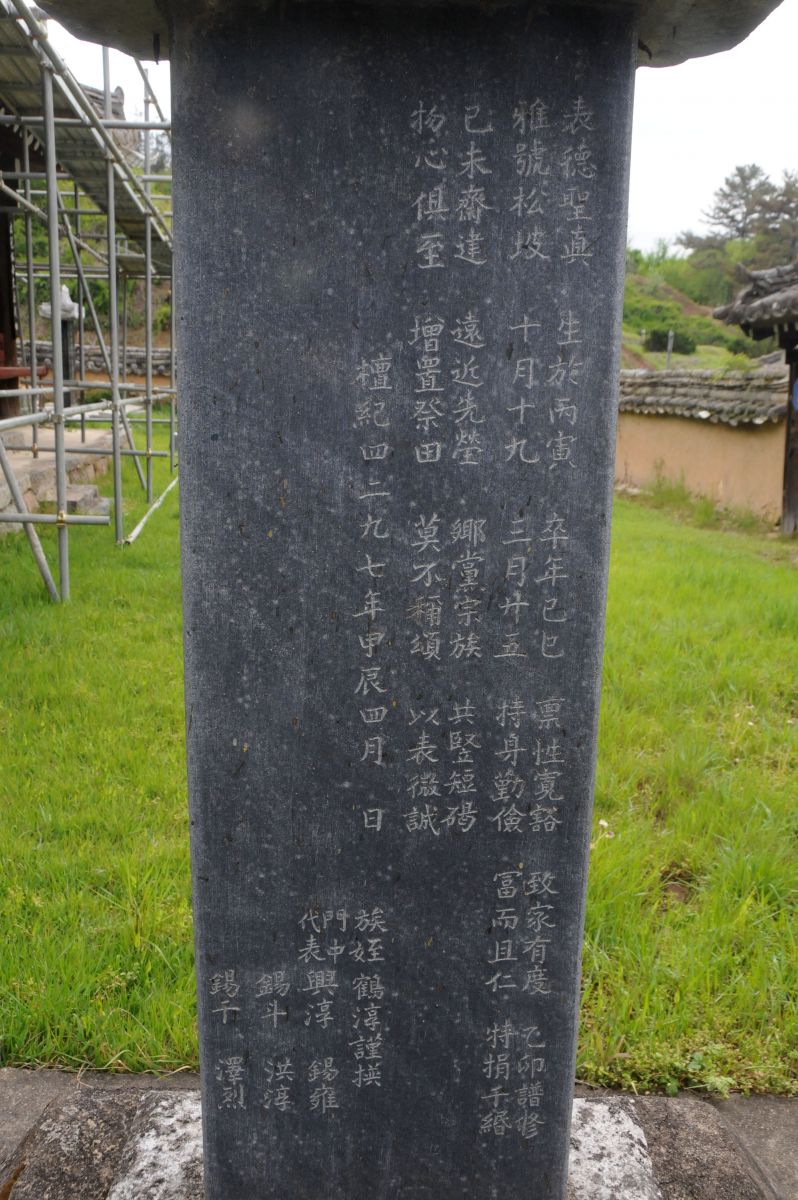 表德聖真 生於丙寅 卒年己巳 禀性寬豁 致家有度 乙卯譜修
雅號松坡 十月十九 三月廿五 持身勤儉 富而且仁 特捐千緡
己未齋建 遠近先塋 鄉黨宗族 共豎短碣
揚心俱至 增置祭田 莫不稱頌 以表微誠
檀紀四二九七年甲辰四月 日
族姪 鶴淳謹撰
門中代表 興淳 錫雍
錫斗 洪淳
錫千 澤烈